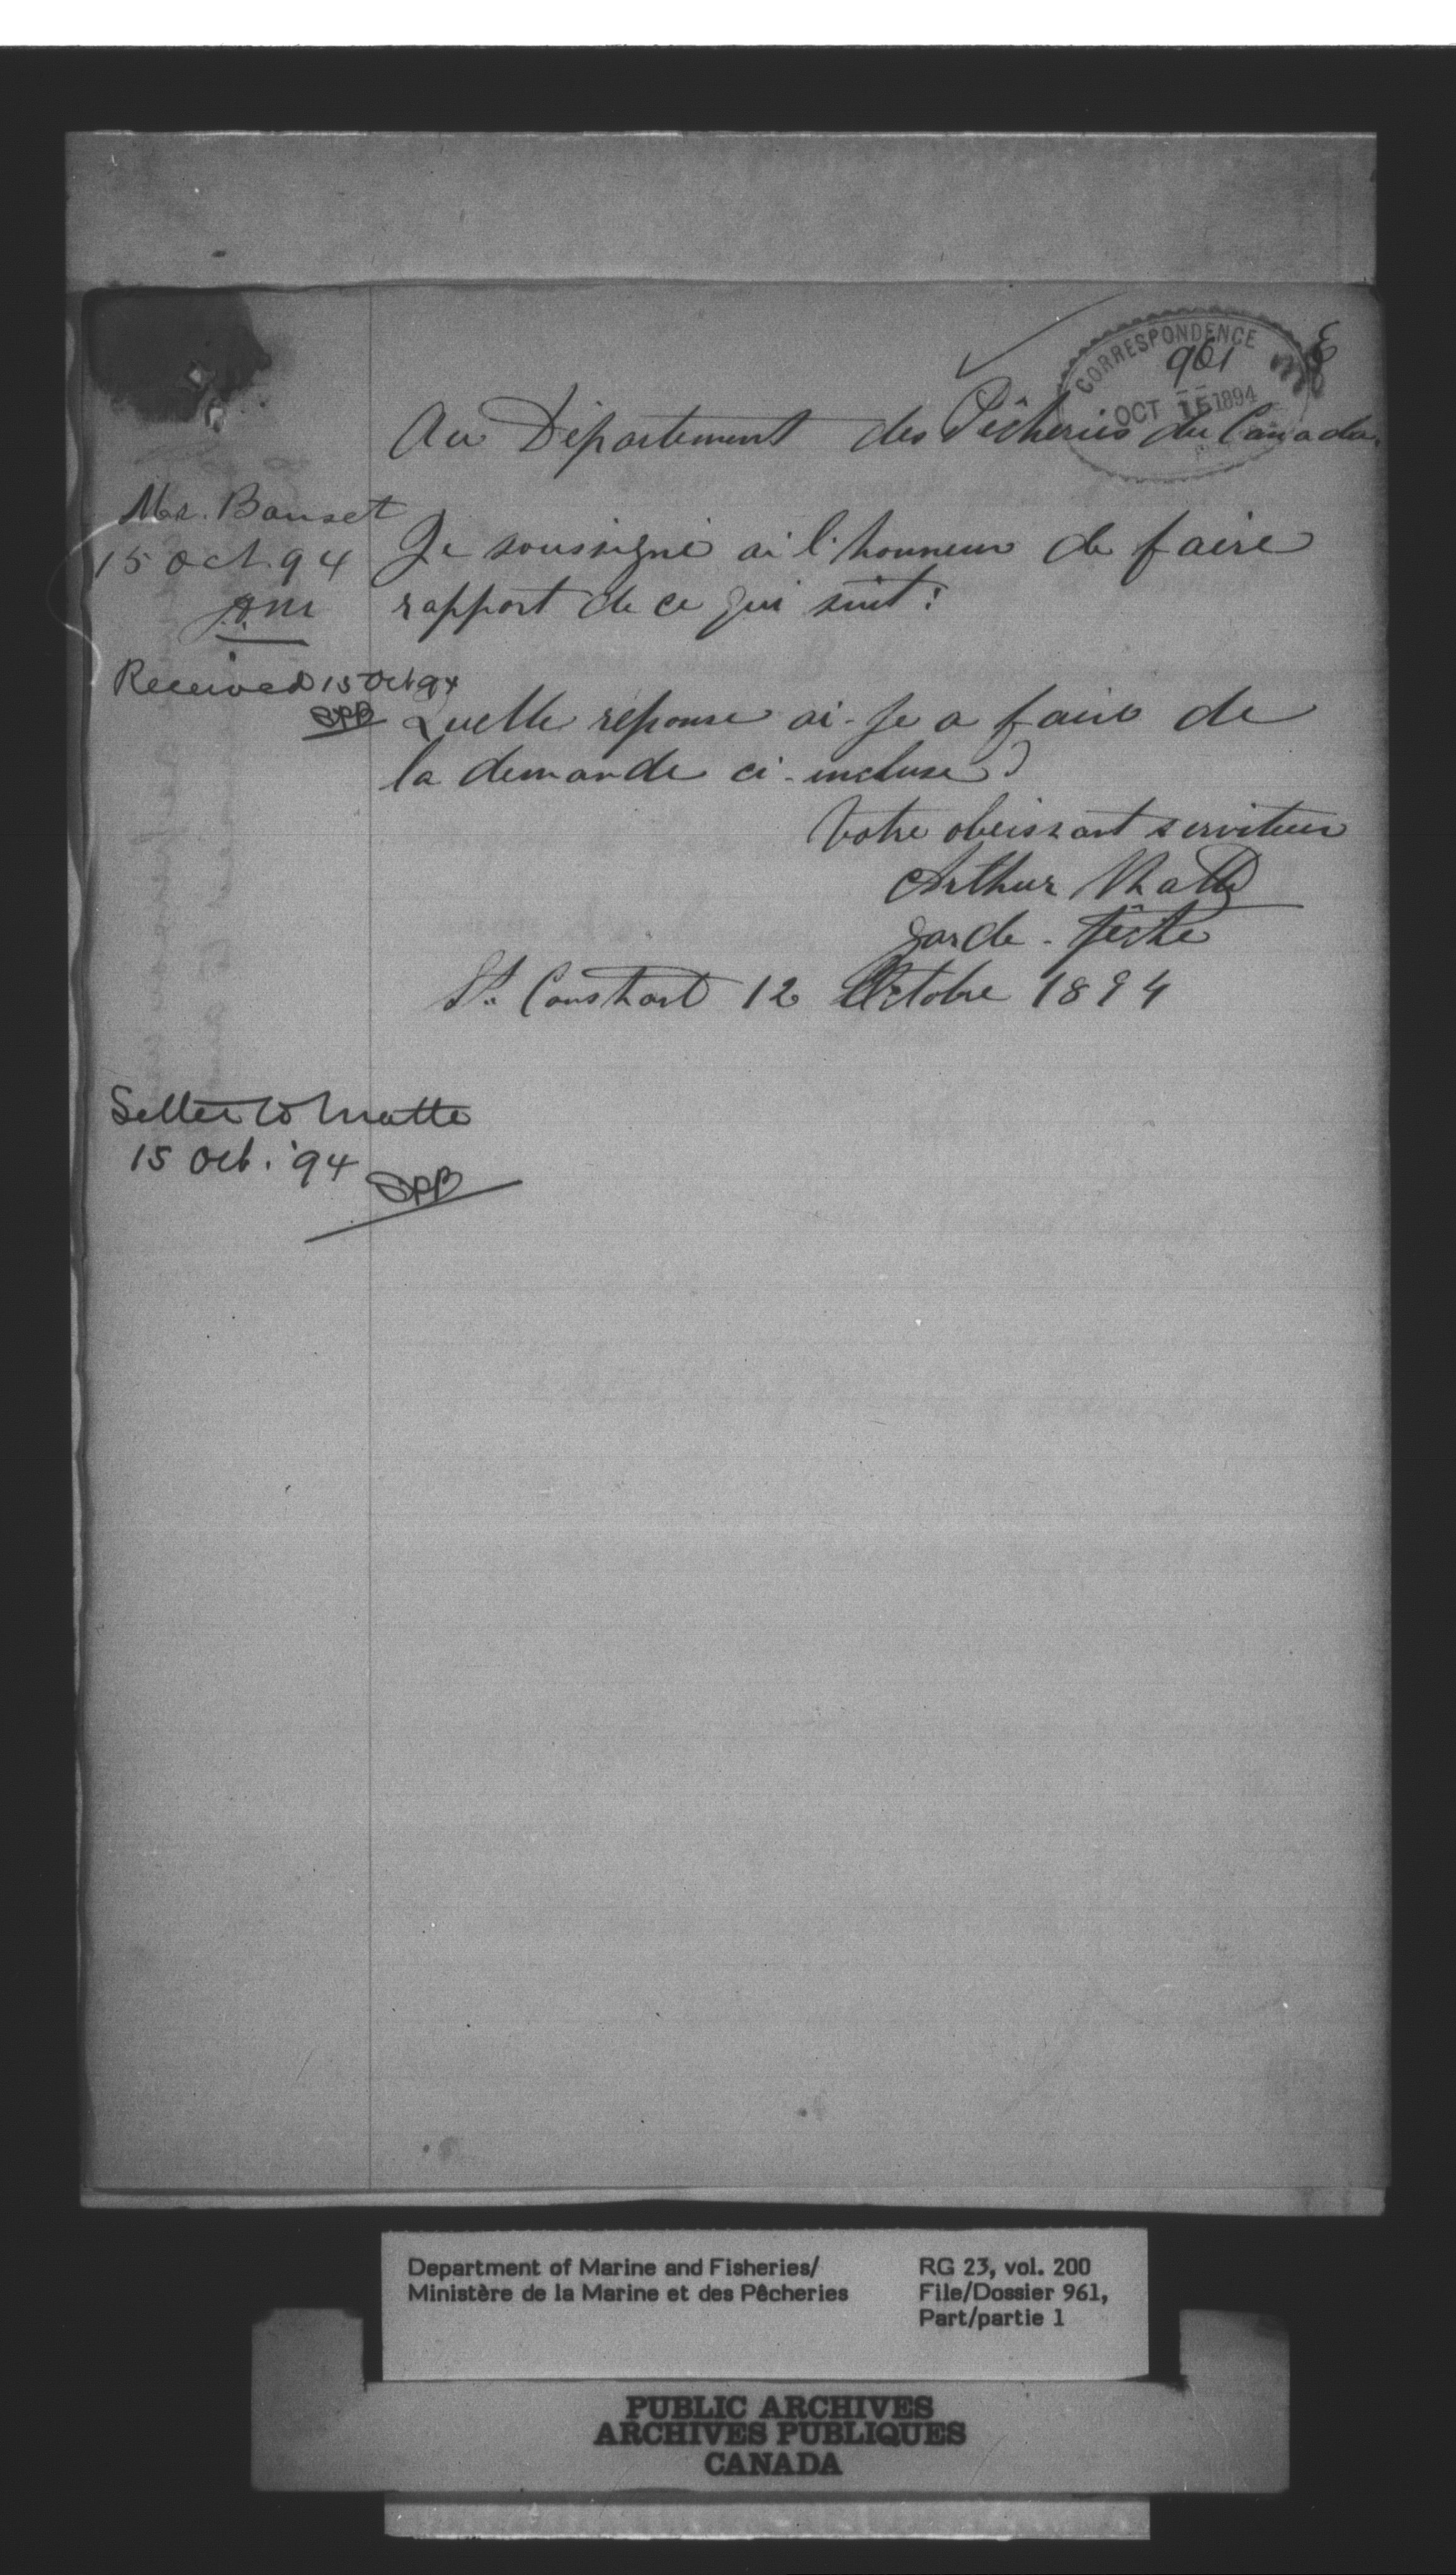 CORRESPONDENCE
961
OCT 15 1894
Au Département des Pêcheries du Canada.
Mr. Bauset
15 Oct. 94
Je soussigné ai l'honneur de faire
rapport de ce qui suit :
Received 15 Oct 94
SPB
Quelle réponse ai-je a faire de
la demande ci-incluse ?
Votre obeissant serviteur
Arthur Matte
garde-pêche
St. Constant 12 Octobre 1894
Letter to Matte
15 Oct. '94
SPB
Department of Marine and Fisheries/
Ministère de la Marine et des Pêcheries
RG 23, vol. 200
File/Dossier 961,
Part/partie 1
PUBLIC ARCHIVES
ARCHIVES PUBLIQUES
CANADA